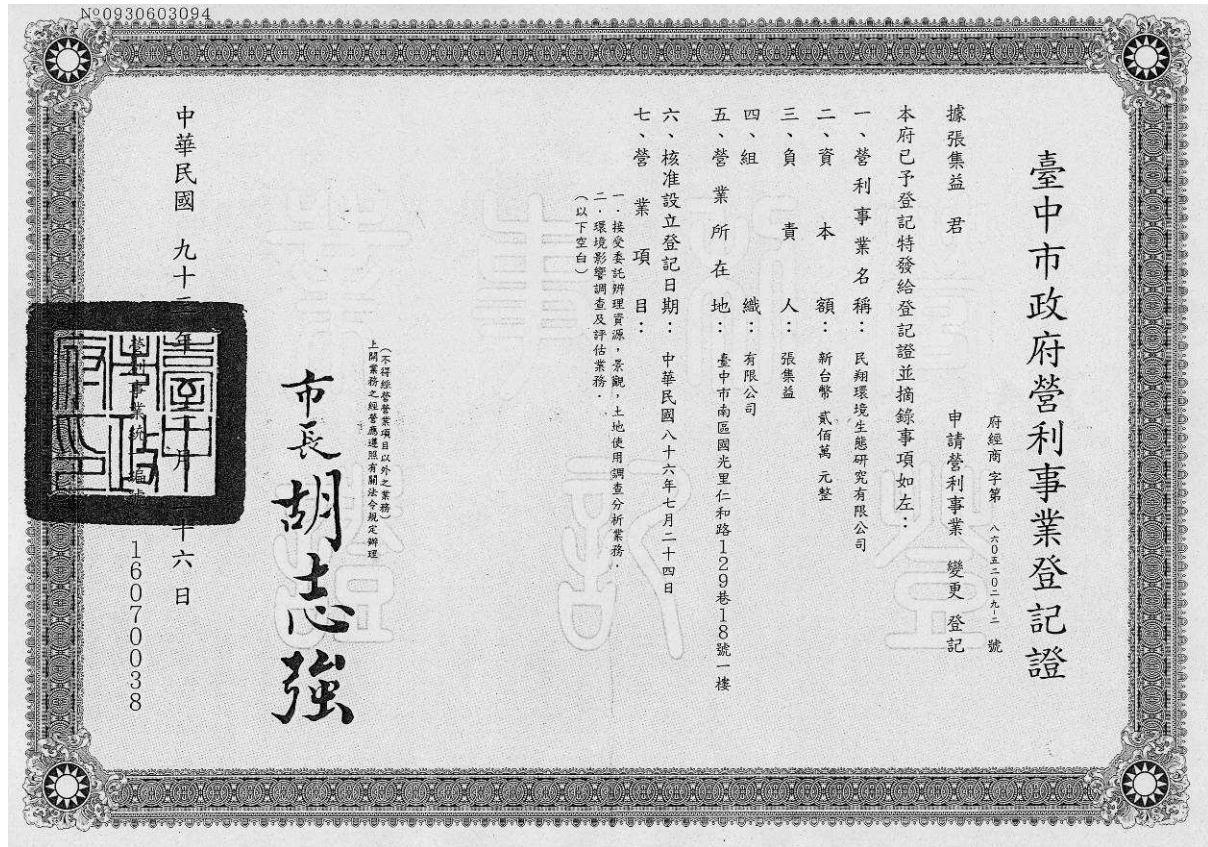 №0930603094
臺中市政府營利事業登記證
府經商字第 八六0五二0二九-二 號
據張集益 君 申請營利事業 變更 登記
本府已予登記特發給登記證並摘錄事項如左：
一、營利事業名稱： 民翔環境生態研究有限公司
二、資本額： 新台幣 貳佰萬 元整
三、負責人： 張集益
四、組織： 有限公司
五、營業所在地： 臺中市南區國光里仁和路129巷18號一樓
六、核准設立登記日期： 中華民國八十六年七月二十四日
七、營業項目：
一．接受委託辦理資源，景觀，土地使用調查分析業務．
二．環境影響調查及評估業務．
（以下空白）
（不得經營營業項目以外之業務）
上開業務之經營應遵照有關法令規定辦理
市長胡志強
中華民國 九十三年 十月二十六日
營利事業統一編號
16070038